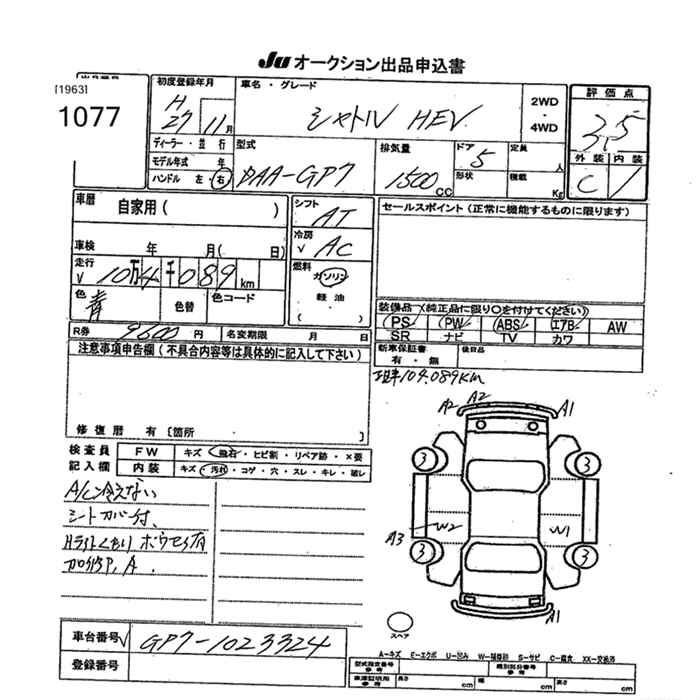 Ju オークション出品申込書
[1963]
1077
初度登録年月
H 27 11月
車名・グレード
シャトル HEV
2WD・4WD
評価点
ディーラー・並行
モデル年式 年
ハンドル 左・右
型式
DAA-GP7
排気量
1500 CC
ドア 5
形状
定員 人
積載 Kg
外装 内装
C
車歴 自家用 ( )
車検 年 月( 日)
走行 √ 10万4千089 km
色 青 色替 色コード
シフト AT
冷房 √ AC
燃料 ガソリン
軽油
( )
セールスポイント (正常に機能するものに限ります)
装備品 (純正品に限り○を付けてください)
PS PW ABS エアB AW
SR ナビ TV カワ
新車保証書 有・無
後日品
R券 9600円 名変期限 月 日
注意事項申告欄 (不具合内容等は具体的に記入して下さい)
修復歴 有 [箇所
104.089Km
検査員記入欄
FW キズ・飛石・ヒビ割・リペア跡・×要
内装 キズ・汚れ・コゲ・穴・スレ・キレ・破レ
A/C冷えない
シートカバー付、
A2 A2 A1
3 3
A3 W2 W1
3 3
A1
スペア
車台番号 √ GP7-1023324
登録番号
A-キズ E-エクボ U-凹み W-補修跡 S-サビ C-腐食 XX-交換済
型式指定番号 参考
類別区分番号 参考
車庫証明用 参考 長さ cm 幅 cm 高さ cm